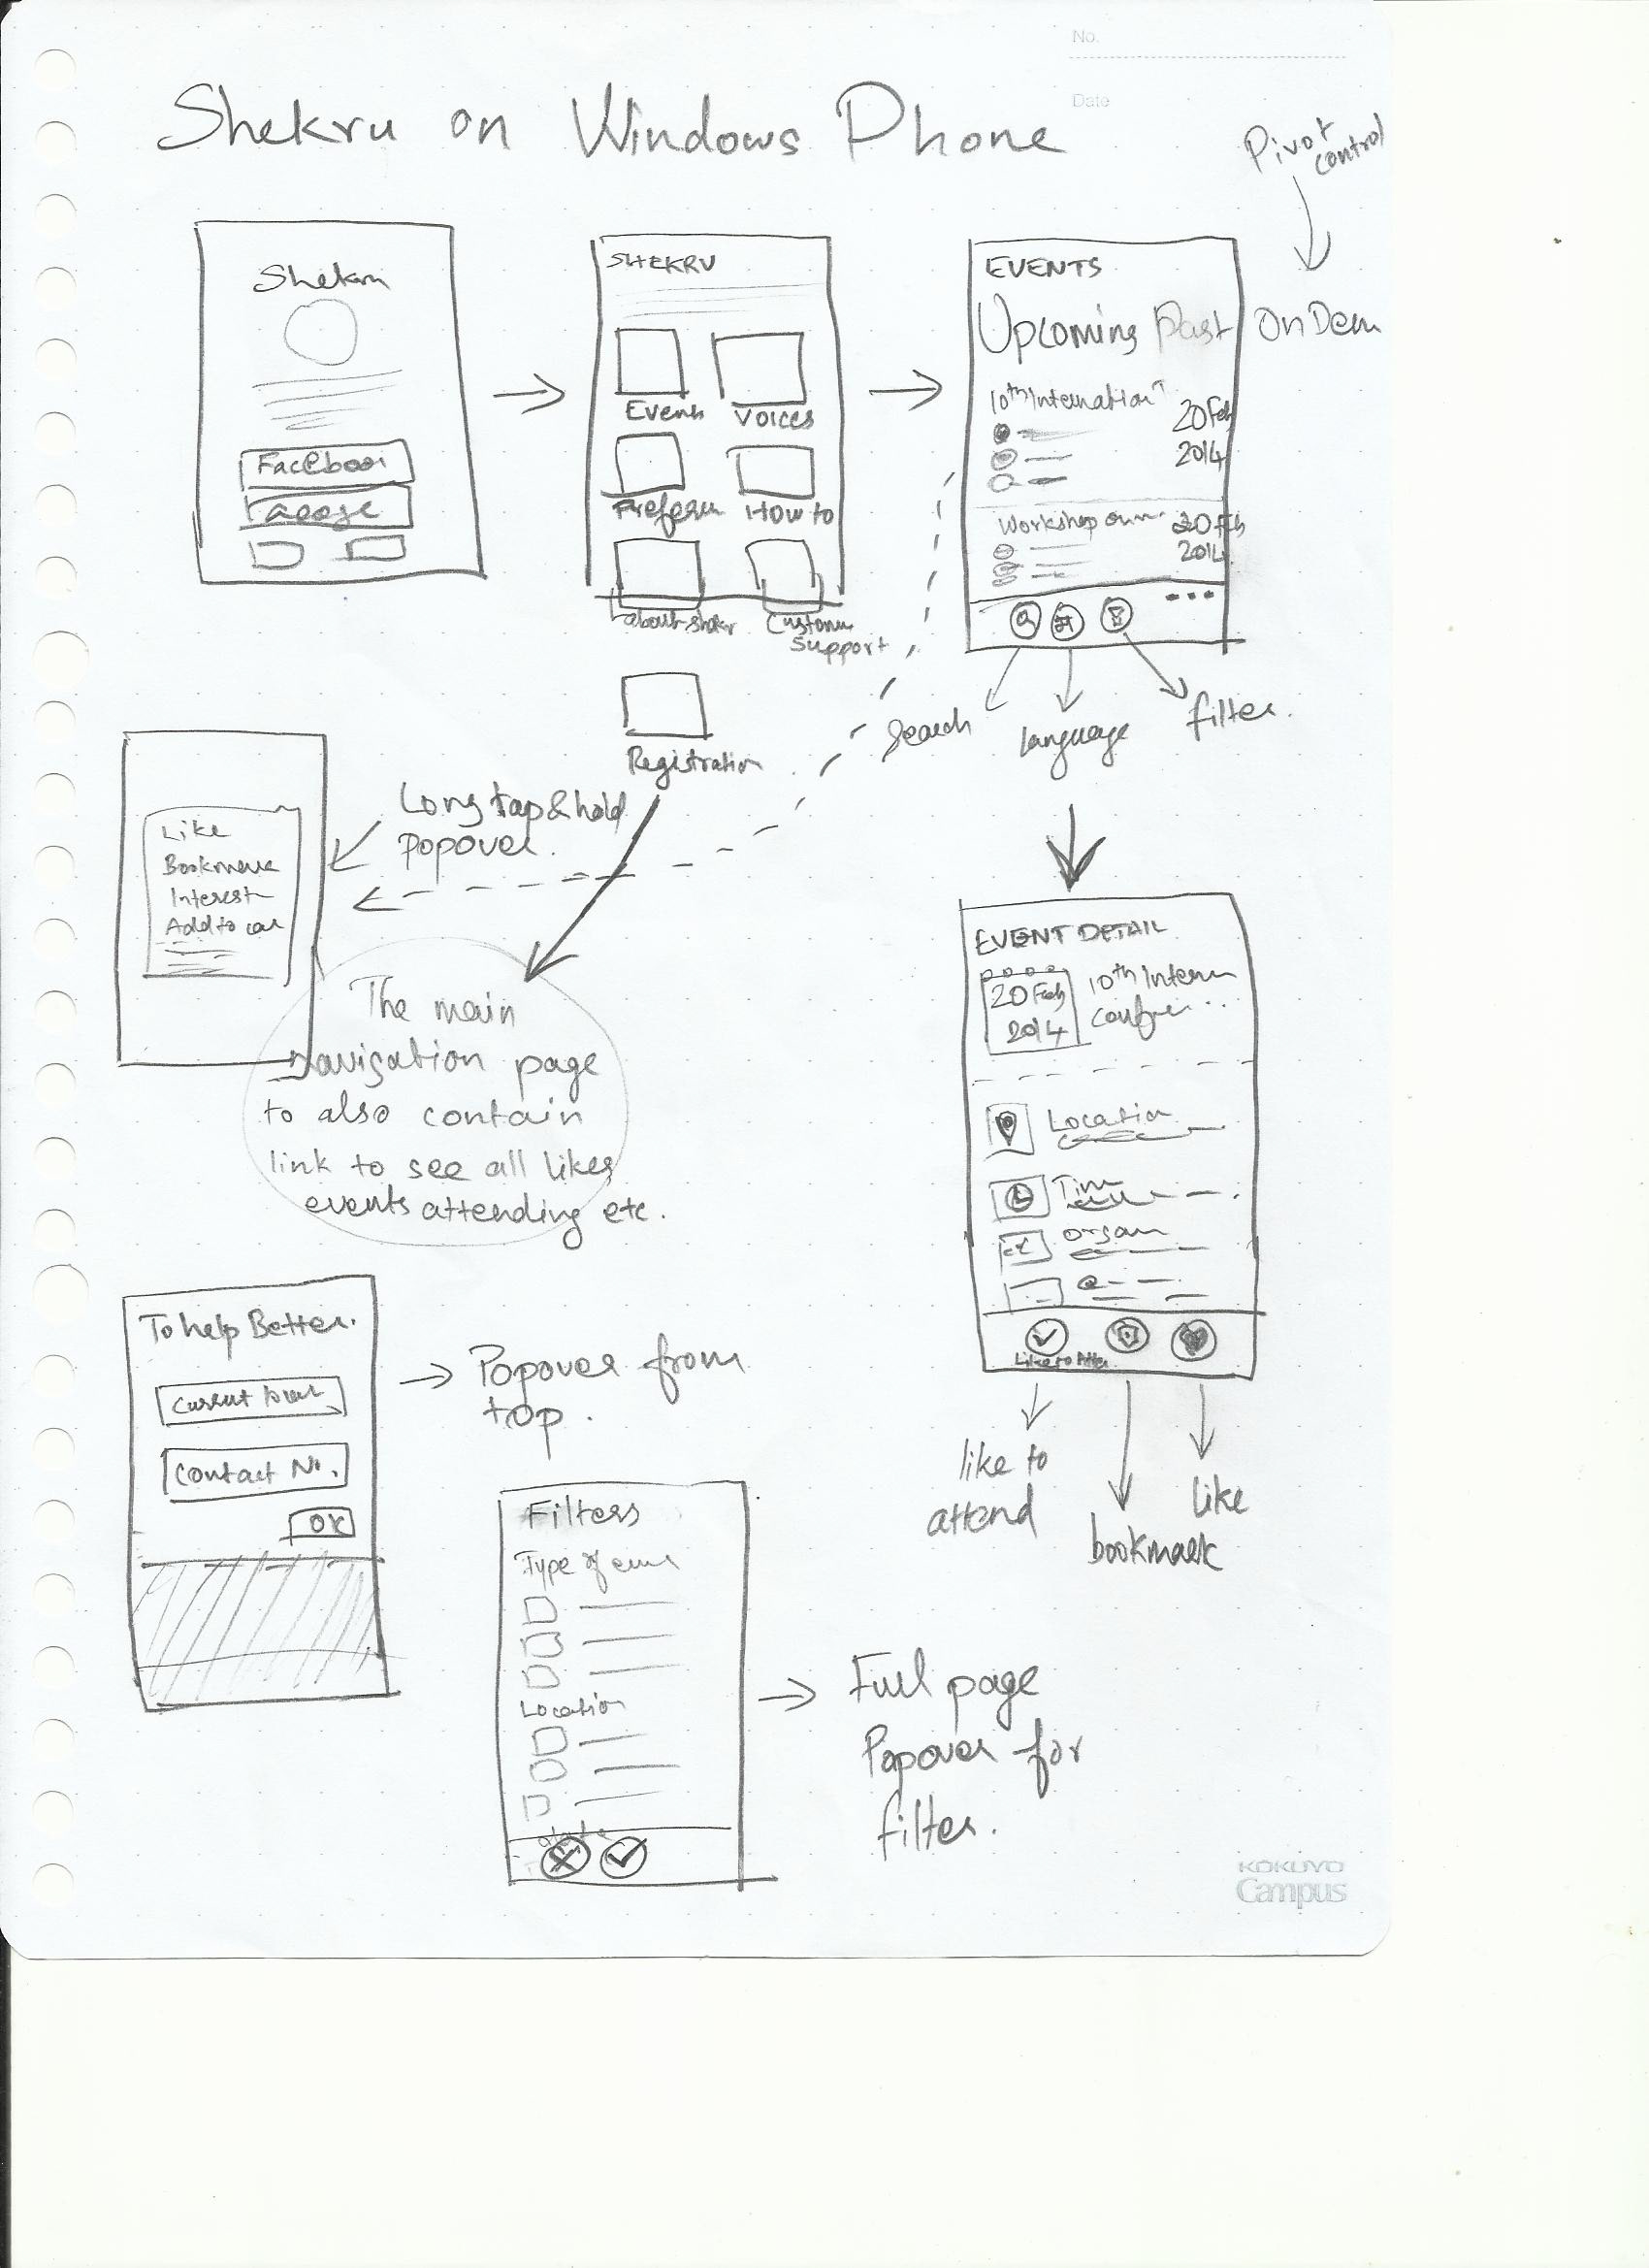 No.
Date
Shekru on Windows Phone
Pivot
control
Shekru
Facebook
SHEKRU
Events
Voices
How to
Customer
Support
Registration
EVENTS
Upcoming Past OnDem
10th Internation
20 Feb
2014
Workshop
20 Feb
2014
...
Search
language
filter.
Like
Interest
Add to
Long tap & hold
Popover.
The main
navigation page
to also contain
link to see all likes,
events attending etc.
EVENT DETAIL
20 Feb
2014
10th Intern
Location
Time
organ
like to
attend
bookmark
like
To help Better.
Current
Contact No.
OK
Popover from
top.
Filters
Type of
Location
Full page
Popover for
filter.
KOKUYO
Campus